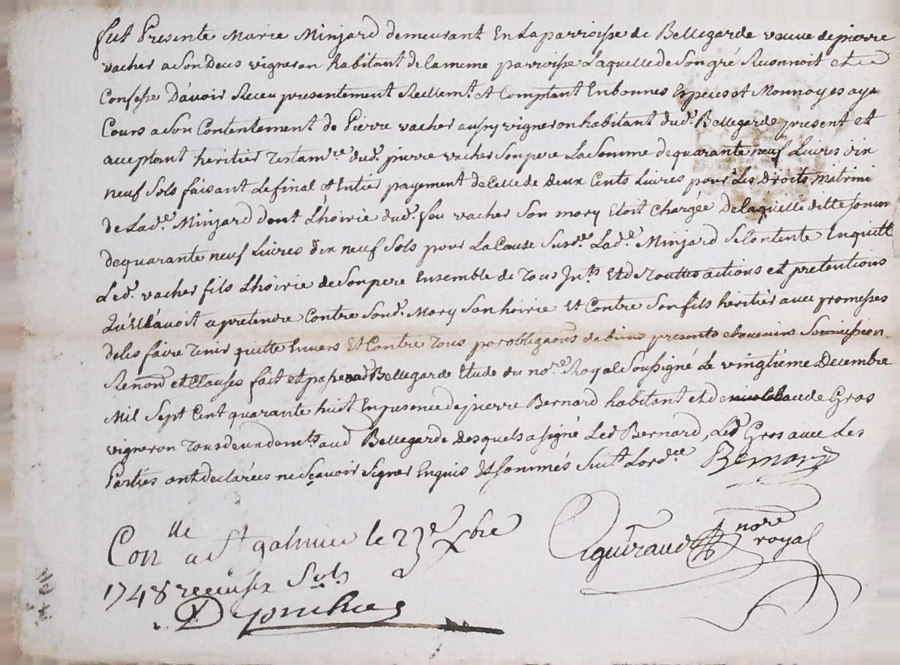 fut Presente Marie Minjard demeurant En la parroisse de Bellegarde veuve de pierre
vacher a son deces vigneron habitant de la meme parroisse Laquelle de son gré Reconnoit et
Confesse D'avoir Receu presentement Reellemt. et Comptant En bonnes Especes et Monnoyes aya
Cours a son Contentement de Pierre vacher aussy vigneron habitant dud. Bellegarde present et
acceptant heritier Testamre. dud. pierre vacher son pere La somme de quarante neuf Livres dix
neuf sols faisant Le final et Entier payement de Celle de deux Cents Livres pour Les Droits matrimi
de Lad. Minjard dont L'hoirie dud. feu vacher son mary Etoit Chargée De laquelle ditte somm
de quarante neuf Livres dix neuf sols pour La Cause susd. Lad. Minjard se Contente En quitte
Led. vacher fils L'hoirie de son pere Ensemble de Tous Jnts. Et de Touttes actions et pretentions
qu'Elle avoit a pretendre Contre sond. Mary son hoirie Et Contre son fils heritier avec promesses
de les faire Tenir quitte Envers Et Contre Tous par obligaons. de biens presents et avenir soumission
Renond. et Clauses fait et passé aud Bellegarde Etude du nore. Royal soussigné Le vingtième Decembre
Mil sept Cent quarante huit En presence de pierre Bernard habitant et de Claude Gros
vigneron Tous deux demts. aud. Bellegarde desquels a signé Led. Bernard, Led. Gros avec Les
Parties ont declarées ne sçavoir signer Enquis et sommés suivt. Lordce Bernard
Conlle a St galmier le 23e Xbre
Aguiraud nore royal
1748 receu six sols